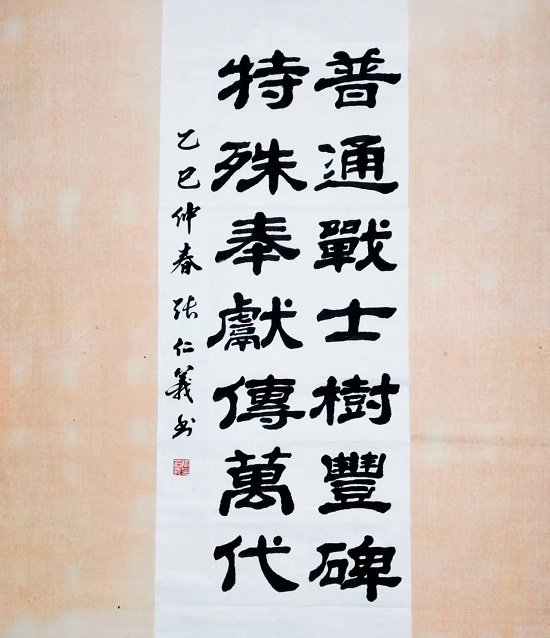 普通戰士樹豐碑
特殊奉獻傳萬代
乙巳仲春 张仁義书